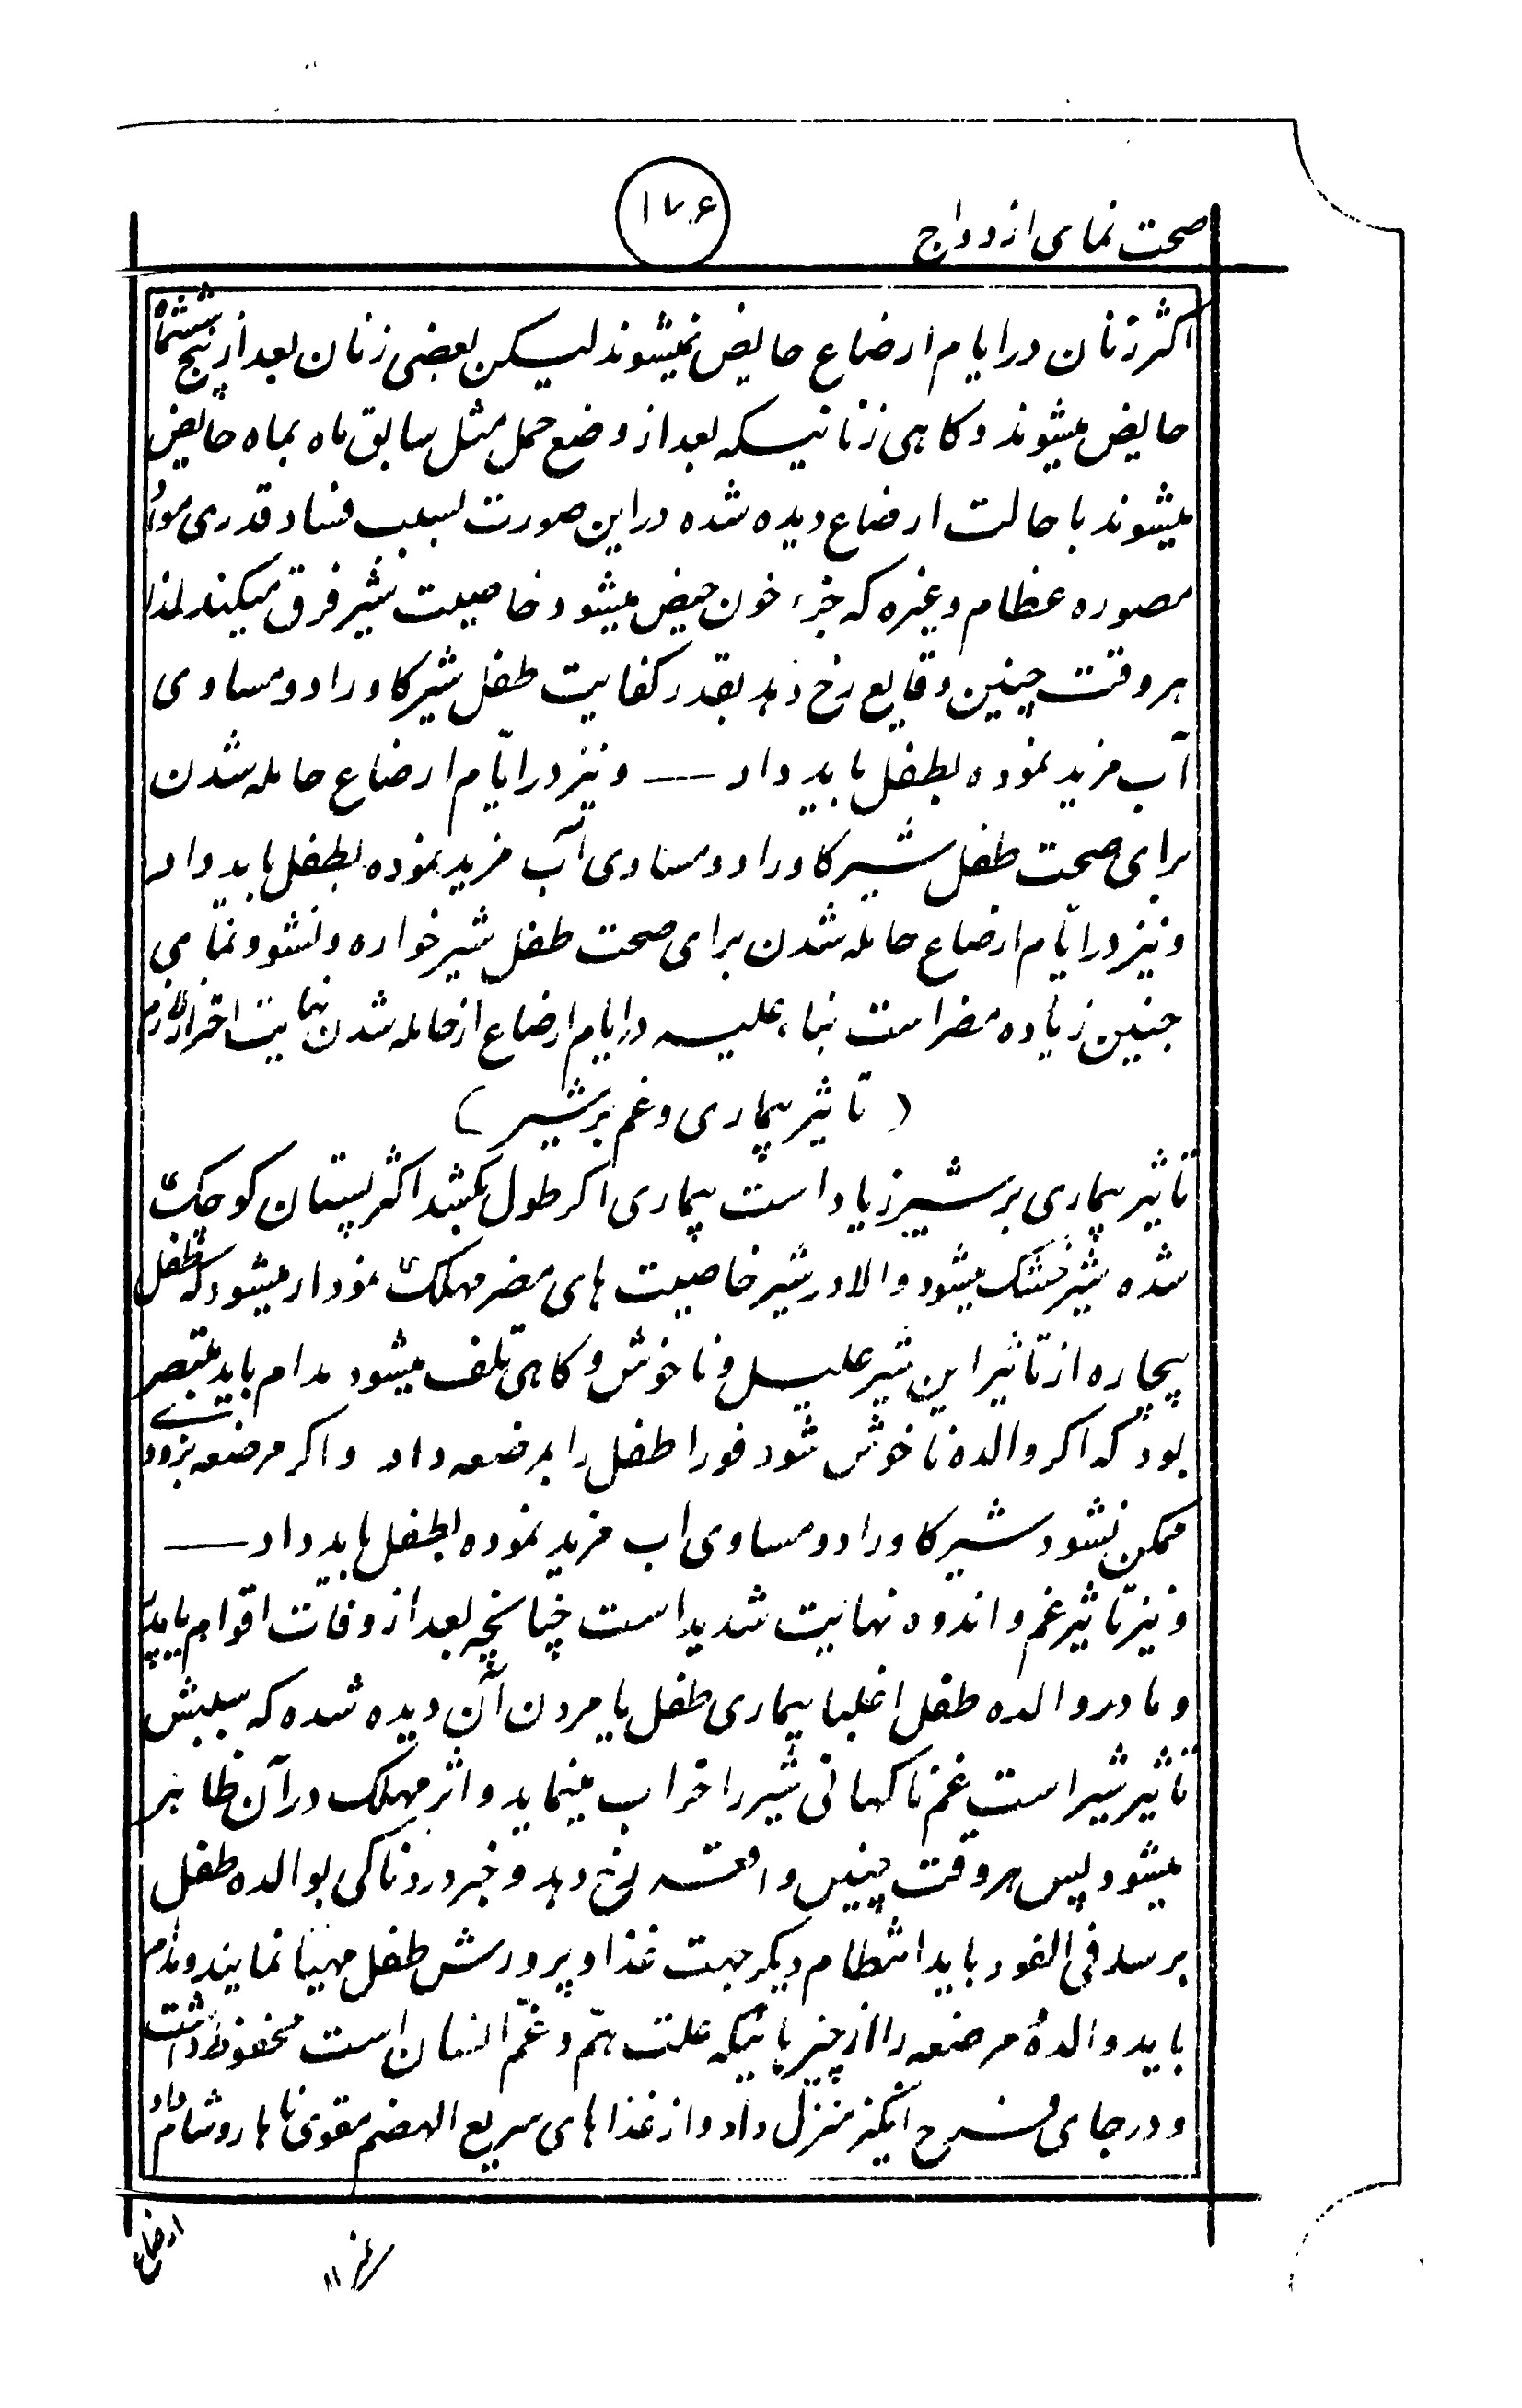 صحت نمای ازدواج
۱۷۶
اکثر زنان در ایام ارضاع حایض نمیشوند لیکن بعضی زنان بعد از پنج ششماه
حایض میشوند و کاهی زنانیکه بعد از وضع حمل مثل سابق ماه بماه حایض
میشوند با حالت ارضاع دیده شده در این صورت بسبب فساد قدری مواد
مصوره عظام و غیره که جزء خون حیض میشود خاصیت شیر فرق میکند لهذا
هر وقت چنین وقایع رخ دهد بقدر کفایت طفل شیر کاو را دو مساوی
آب مزید نموده بطفل باید داد — و نیز در ایّام ارضاع حامله شدن
برای صحت طفل شیر کاو را دو مساوی آب مزید نموده بطفل باید داد
و نیز در ایّام ارضاع حامله شدن برای صحت طفل شیر خواره و نشو و نمای
جنین زیاده مضر است بناء علیه در ایام ارضاع از حامله شدن نهایت احتراز لازم
( تاثیر بیماری و غم بر شیر )
تاثیر بیماری بر شیر زیاد است بیماری اکر طول بکشد اکثر پستان کوچک
شده شیر خشک میشود و الا در شیر خاصیت های مضر مهلک نمودار میشود که طفل
بیچاره از تاثیر این شیر علیل و ناخوش و کاهی تلف میشود مدام باید ملتبصر
بود که اکر والده ناخوش شود فورا طفل را بمرضعه داد و اکر مرضعه بزودی
ممکن نشود شیر کاو را دو مساوی اب مزید نموده بطفل باید داد —
و نیز تاثیر غم و اندوه نهایت شدید است چنانچه بعد از وفات اقوام یا پدر
و مادر والده طفل اغلبا بیماری طفل یا مردن آن دیده شده که سببش
تاثیر شیر است غم ناکهانی شیر را خراب مینماید و اثر مهلک در آن ظاهر
میشود پس هر وقت چنین واقعه رخ دهد و خبر دردناکی بوالده طفل
برسد فی الفور باید انتظام دیکر جهت غذا و پرورش طفل مهیا نمایند و مدام
باید والدهٔ مرضعه را از چیزهائیکه علت همّ و غمّ انسان است محفوظ داشت
و در جای فرح انکیز منزل داد و از غذا های سریع الهضم مقوی ناهار و شام داد
ارضاع